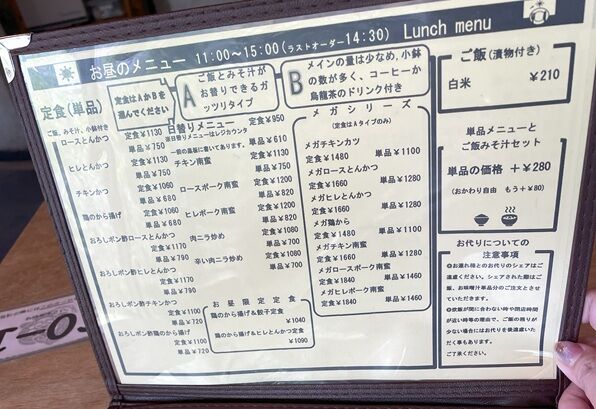 お昼のメニュー 11:00～15:00(ラストオーダー14:30) Lunch menu
定食(単品)
ご飯、みそ汁、小鉢付き
定食はAかBを
選んでください
A
ご飯とみそ汁が
お替りできるガ
ッツリタイプ
B
メインの量は少なめ,小鉢
の数が多く、コーヒーか
烏龍茶のドリンク付き
ロースとんかつ
定食¥1130
単品¥750
ヒレとんかつ
定食¥1130
単品¥750
チキンかつ
定食¥1060
単品¥680
鶏のから揚げ
定食¥1060
単品¥680
おろしポン酢ロースとんかつ
定食¥1170
単品¥790
おろしポン酢ヒレとんかつ
定食¥1170
単品¥790
おろしポン酢チキンかつ
定食¥1100
単品¥720
おろしポン酢鶏のから揚げ
定食¥1100
単品¥720
日替りメニュー 定食¥950
単品¥610
チキン南蛮
定食¥1130
単品¥750
ロースポーク南蛮
定食¥1200
単品¥820
ヒレポーク南蛮
定食¥1200
単品¥820
肉ニラ炒め
定食¥1080
単品¥700
辛い肉ニラ炒め
定食¥1080
単品¥700
お昼限定定食
鶏のから揚げ&餃子定食
¥1040
鶏のから揚げ&ヒレとんかつ定食
¥1090
メガシリーズ
(定食はAタイプのみ)
メガチキンカツ
定食¥1480 単品¥1100
メガロースとんかつ
定食¥1660 単品¥1280
メガヒレとんかつ
定食¥1660 単品¥1280
メガ鶏から
定食¥1480 単品¥1100
メガチキン南蛮
定食¥1660 単品¥1280
メガロースポーク南蛮
定食¥1840 単品¥1460
メガヒレポーク南蛮
定食¥1840 単品¥1460
ご飯(漬物付き)
白米 ¥210
単品メニューと
ご飯みそ汁セット
単品の価格 +¥280
(おかわり自由 もう+¥80)
お代りについての
注意事項
●お連れ様とのお代りのシェアはご
遠慮ください。シェアされた際はご
飯、お味噌汁単品分のご注文とさせ
ていただきます。
●炊飯が間に合わない時や閉店時間
が近い時等の理由で、ご飯の残りが
少ない場合にはお代りを後遠慮いた
だく事もあります。
ご了承ください。